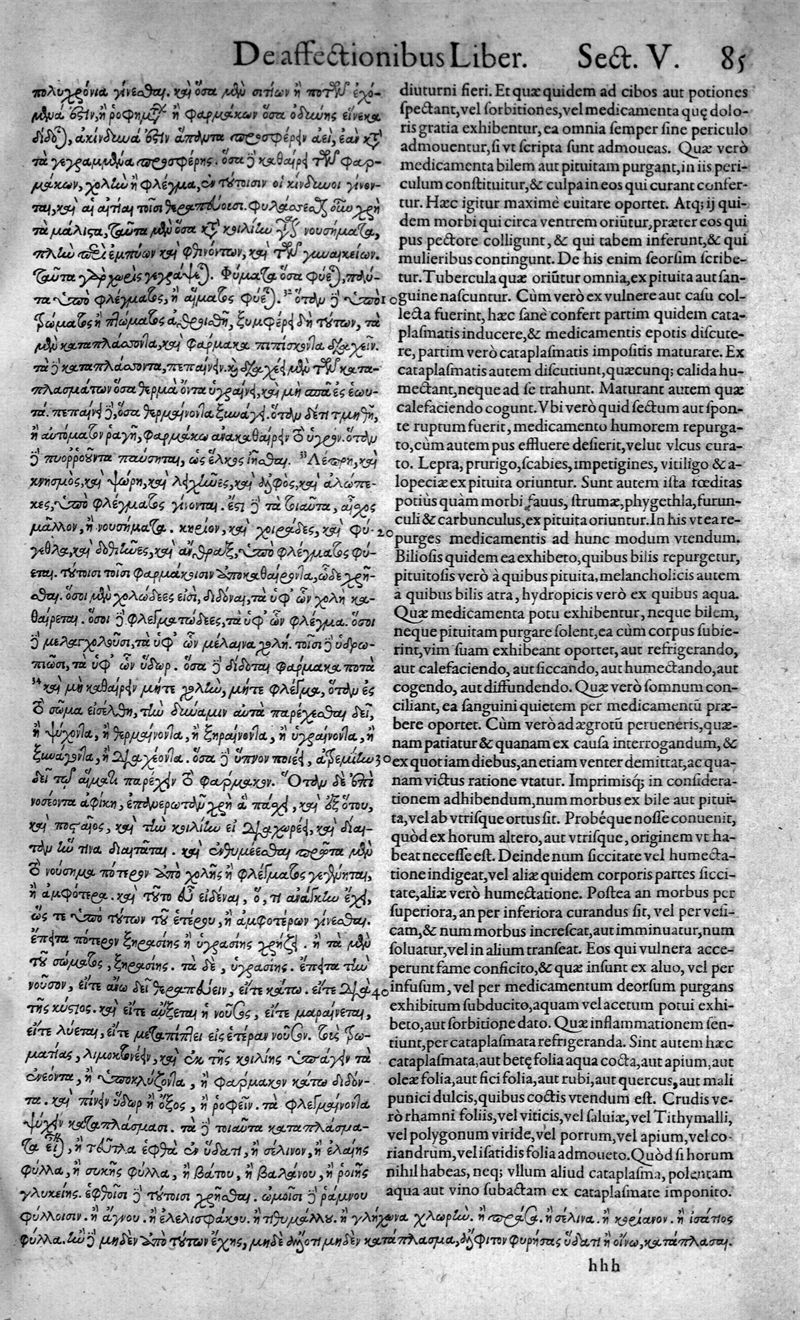 De affectionibus Liber. Sect. V. 85
πολυχρόνια γίνεσθαι. καὶ ὅσα μὲν σιτίων ἢ ποτῶν ἐχό-
μενά ἐστιν, ἢ ῥοφημάτων ἢ φαρμάκων ὅσα ὀδύνης εἵνεκα
δίδοται, ἀκίνδυνά ἐστιν ἅπαντα προσφέρειν ἀεὶ, ἐὰν κατὰ
τὰ γεγραμμένα προσφέρῃς. ὅσα δὲ καθαίρει τῶν φαρ-
μάκων, χολὴν ἢ φλέγμα, ἐν τούτοισιν οἱ κίνδυνοι γίνον-
ται, καὶ αἱ αἰτίαι τοῖσι θεραπεύουσι. φυλάσσεσθαι οὖν χρὴ
τὰ μάλιστα, ταῦτα μὲν ὅσα κατὰ κοιλίην τῶν νουσήματα,
πλὴν περὶ ἐμπύων καὶ φθινόντων, καὶ τῶν γυναικείων.
ταῦτα γὰρ χωρὶς γεγράψεται. Φύματα ὅσα φύεται, πάν-
τα ὑπὸ φλέγματος, ἢ αἵματος φύεται. ὅταν δὲ ὑπὸ 10
τρώματος ἢ πτώματος ἀθροισθῇ, ξυμφέρει δὲ τούτων, τὰ
μὲν καταπλάσσοντα, καὶ φάρμακα πιπίσκοντα διαχεῖν.
τὰ δὲ καταπλάσσοντα, πεπαίνειν. διαχέει μὲν τῶν κατα-
πλασμάτων ὅσα θερμὰ ὄντα ὑγραίνει, καὶ μὴ σπᾷ ἐς ἑωυ-
τά. πεπαίνει δὲ, ὅσα θερμαίνοντα ξυνάγει. ὅταν δέ τι τμηθῇ,
ἢ αὐτόματον ῥαγῇ, φαρμάκῳ ἀνακαθαίρειν τὸ ὑγρόν. ὅταν
δὲ πυορροοῦντα παύσηται, ὡς ἕλκος ἰῆσθαι. Λέπρη, καὶ
κνησμὸς, καὶ ψώρη, καὶ λειχῆνες, καὶ ἀλφὸς, καὶ ἀλώπε-
κες, ὑπὸ φλέγματος γίνονται. ἔστι δὲ τὰ τοιαῦτα, αἶσχος
μᾶλλον, ἢ νουσήματα. κηρίον, καὶ χοιράδες, καὶ φύ- 20
γεθλα, καὶ δοθιῆνες, καὶ ἄνθραξ, ὑπὸ φλέγματος φύ-
εται. τούτοισι τοῖσι φαρμάκοισιν ἀποκαθαίροντα, ὧδε χρῆ-
σθαι. ὅσοι μὲν χολώδεες εἰσὶ, διδόναι, τὰ ὑφ' ὧν χολὴ κα-
θαίρεται. ὅσοι δὲ φλεγματώδεες, τὰ ὑφ' ὧν φλέγμα. ὅσοι
δὲ μελαγχολῶσι, τὰ ὑφ' ὧν μέλαινα χολή. τοῖσι δὲ ὑδρω-
πιῶσι, τὰ ὑφ' ὧν ὕδωρ. ὅσα δὲ δίδοται φάρμακα ποτὰ
καὶ μὴ καθαίρει μήτε χολὴν, μήτε φλέγμα, ὅταν ἐς
τὸ σῶμα εἰσέλθῃ, τὴν δύναμιν αὐτὰ παρέχεσθαι δεῖ,
ἢ ψύχοντα, ἢ θερμαίνοντα, ἢ ξηραίνοντα, ἢ ὑγραίνοντα, ἢ
ξυνάγοντα, ἢ διαχέοντα. ὅσα δὲ ὕπνον ποιέει, ἀτρεμίην 30
δεῖ τῷ αἵματι παρέχειν τὸ φάρμακον. Ὅταν δὲ ἐπὶ
νοσέοντα ἀφίκῃ, ἐπανερωτᾶν χρὴ ἃ πάσχει, καὶ ἐξ ὅτου,
καὶ ποσταῖος, καὶ τὴν κοιλίην εἰ διαχωρέει, καὶ δίαι-
ταν ἥντινα διαιτᾶται. καὶ ἐνθυμέεσθαι πρῶτα μὲν
τὸ νούσημα πότερον ἀπὸ χολῆς ἢ φλέγματος γεγένηται,
ἢ ἀμφότερα. καὶ τοῦτο εὖ εἰδέναι, ὅ, τι ἀνάγκην ἔχει,
ὥς τε ὑπὸ τούτων τοῦ ἑτέρου, ἢ ἀμφοτέρων γίνεσθαι.
ἔπειτα πότερον ξηρασίης ἢ ὑγρασίης χρῄζει. ἢ τὰ μὲν
τοῦ σώματος, ξηρασίης. τὰ δὲ, ὑγρασίης. ἔπειτα τὴν
νοῦσον, εἴτε ἄνω δεῖ θεραπεύειν, εἴτε κάτω. εἴτε διὰ 40
τῆς κύστιος. καὶ εἴτε αὔξεται ἡ νοῦσος, εἴτε μαραίνεται,
εἴτε λύεται, εἴτε μεταπίπτει εἰς ἑτέραν νοῦσον. Τοὺς τρω-
ματίας, λιμοκτονέειν, καὶ ἐκ τῆς κοιλίης ὑπάγειν τὰ
ἐνεόντα, ἢ ὑποκλύζοντα, ἢ φάρμακον κάτω διδόν-
τα. καὶ πίνειν ὕδωρ ἢ ὄξος, ἢ ῥοφεῖν. τὰ φλεγμαίνοντα
ψύχειν καταπλάσμασι. τὰ δὲ τοιαῦτα καταπλάσμα-
τα εἶναι, ἢ τεῦτλα ἑφθὰ ἐν ὕδατι, ἢ σέλινον, ἢ ἐλαίης
φύλλα, ἢ συκῆς φύλλα, ἢ βάτου, ἢ βαλάνου, ἢ ῥοιῆς
γλυκείης. ἑφθοῖσι δὲ τούτοισι χρῆσθαι. ὠμοῖσι δὲ ῥάμνου
φύλλοισιν. ἢ ἄγνου. ἢ ἐλελισφάκου. ἢ τιθυμάλλου. ἢ γλήχωνα χλωρὴν. ἢ πράσα. ἢ σέλινα. ἢ κορίανον. ἢ ἰσάτιος
φύλλα. ἢν δὲ μηδὲν ἀπὸ τούτων ἔχῃς, μηδὲ ἄλλο τι μηδὲν κατάπλασμα, ἄλφιτον φυρήσας ὕδατι ἢ οἴνῳ, κατάπλασαι.
diuturni fieri. Et quæ quidem ad cibos aut potiones
ſpectant, vel ſorbitiones, vel medicamenta quę dolo-
ris gratia exhibentur, ea omnia ſemper ſine periculo
admouentur, ſi vt ſcripta ſunt admoueas. Quæ verò
medicamenta bilem aut pituitam purgant, in iis peri-
culum conſtituitur, & culpa in eos qui curant confer-
tur. Hæc igitur maximè euitare oportet. Atq; ij qui-
dem morbi qui circa ventrem oriũtur, præter eos qui
pus pectore colligunt, & qui tabem inferunt, & qui
mulieribus contingunt. De his enim ſeorſim ſcribe-
tur. Tubercula quæ oriũtur omnia, ex pituita aut ſan-
guine naſcuntur. Cùm verò ex vulnere aut caſu col-
lecta fuerint, hæc ſanè confert partim quidem cata-
plaſmatis inducere, & medicamentis epotis diſcute-
re, partim verò cataplaſmatis impoſitis maturare. Ex
cataplaſmatis autem diſcutiunt, quæcunq; calida hu-
mectant, neque ad ſe trahunt. Maturant autem quæ
calefaciendo cogunt. Vbi verò quid ſectum aut ſpon-
te ruptum fuerit, medicamento humorem repurga-
to, cùm autem pus effluere deſierit, velut vlcus cura-
to. Lepra, prurigo, ſcabies, impetigines, vitiligo & a-
lopeciæ ex pituita oriuntur. Sunt autem iſta fœditas
potiùs quàm morbi. fauus, ſtrumæ, phygethla, furun-
culi & carbunculus, ex pituita oriuntur. In his vt ea re-
purges medicamentis ad hunc modum vtendum.
Bilioſis quidem ea exhibeto, quibus bilis repurgetur,
pituitoſis verò à quibus pituita, melancholicis autem
à quibus bilis atra, hydropicis verò ex quibus aqua.
Quæ medicamenta potu exhibentur, neque bilem,
neque pituitam purgare ſolent, ea cùm corpus ſubie-
rint, vim ſuam exhibeant oportet, aut refrigerando,
aut calefaciendo, aut ſiccando, aut humectando, aut
cogendo, aut diffundendo. Quæ verò ſomnum con-
ciliant, ea ſanguini quietem per medicamentũ præ-
bere oportet. Cùm verò ad ægrotũ perueneris, quæ-
nam patiatur & quanam ex cauſa interrogandum, &
ex quot iam diebus, an etiam venter demittat, ac qua-
nam victus ratione vtatur. Imprimiſq; in conſidera-
tionem adhibendum, num morbus ex bile aut pitui-
ta, vel ab vtriſque ortus ſit. Probéque noſſe conuenit,
quòd ex horum altero, aut vtriſque, originem vt ha-
beat neceſſe eſt. Deinde num ſiccitate vel humecta-
tione indigeat, vel aliæ quidem corporis partes ſicci-
tate, aliæ verò humectatione. Poſtea an morbus per
ſuperiora, an per inferiora curandus ſit, vel per veſi-
cam, & num morbus increſcat, aut imminuatur, num
ſoluatur, vel in alium tranſeat. Eos qui vulnera acce-
perunt fame conficito, & quæ inſunt ex aluo, vel per
infuſum, vel per medicamentum deorſum purgans
exhibitum ſubducito, aquam vel acetum potui exhi-
beto, aut ſorbitione dato. Quæ inflammationem ſen-
tiunt, per cataplaſmata refrigeranda. Sint autem hæc
cataplaſmata, aut betę folia aqua cocta, aut apium, aut
oleæ folia, aut fici folia, aut rubi, aut quercus, aut mali
punici dulcis, quibus coctis vtendum eſt. Crudis ve-
rò rhamni foliis, vel viticis, vel ſaluiæ, vel Tithymalli,
vel polygonum viride, vel porrum, vel apium, vel co-
riandrum, vel iſatidis folia admoueto. Quòd ſi horum
nihil habeas, neq; vllum aliud cataplaſma, polentam
aqua aut vino ſubactam ex cataplaſmate imponito.
hhh